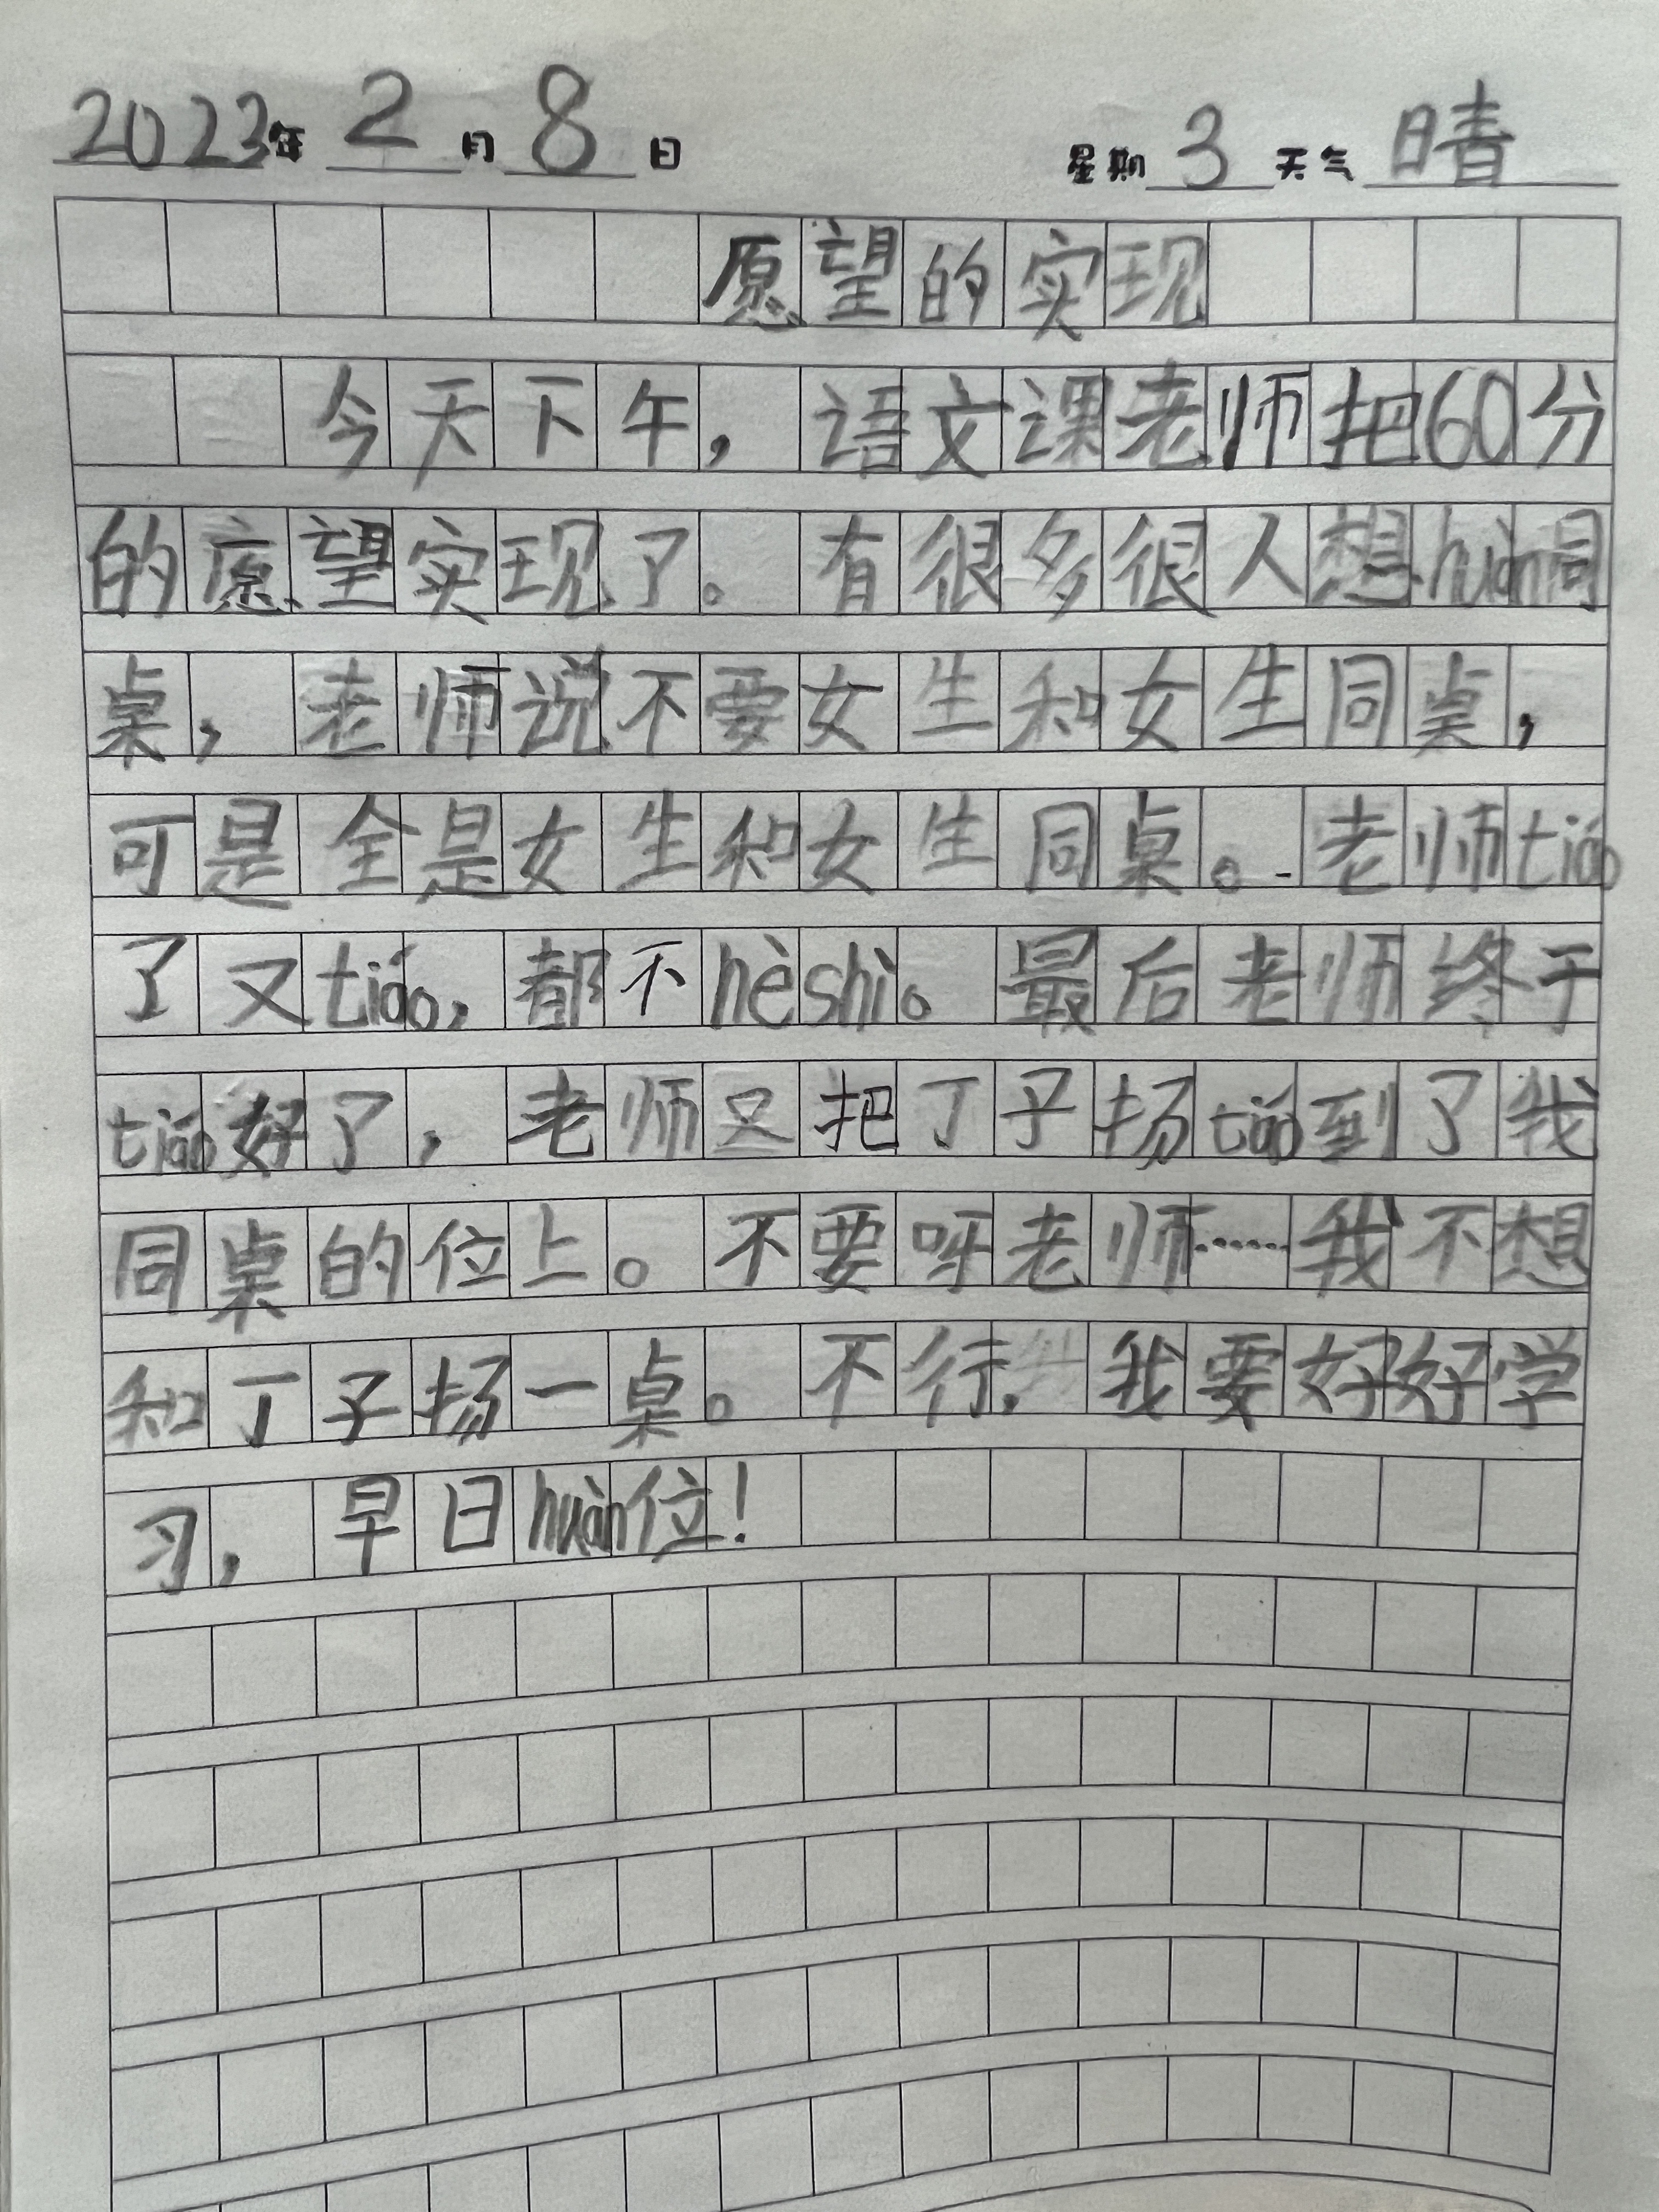 2023年2月8日 星期3天气晴
愿望的实现
今天下午，语文课老师把60分
的愿望实现了。有很多很人想huàn同
桌，老师说不要女生和女生同桌，
可是全是女生和女生同桌。老师tiáo
了又tiáo，都不hèshì。最后老师终于
tiáo好了，老师又把丁子扬tiáo到了我
同桌的位上。不要呀老师……我不想
和丁子扬一桌。不行，我要好好学
习，早日huàn位！